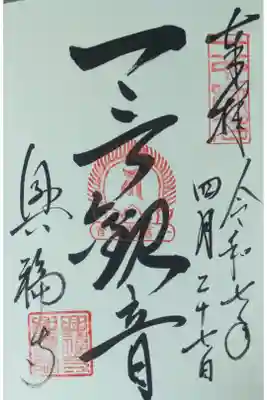 奉拝
令和七年
四月二十七日
一言観音
興福寺